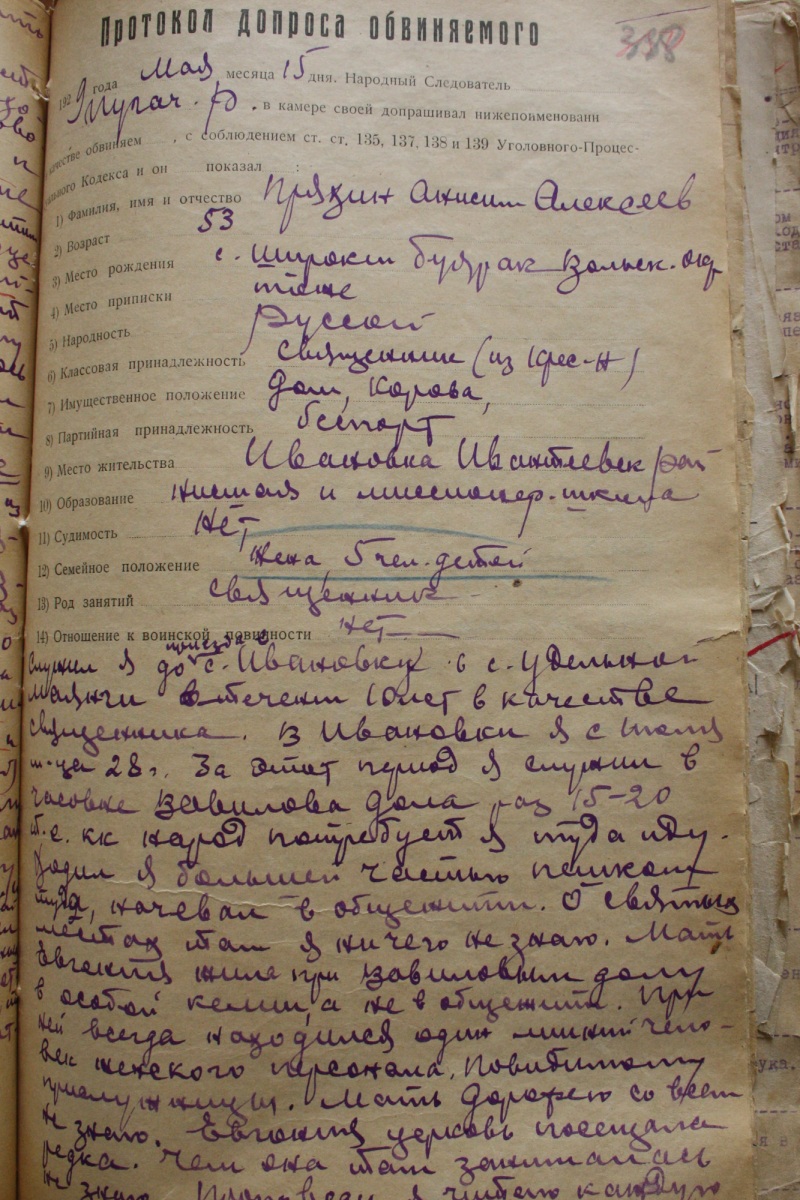 Протокол допроса обвиняемого
338
192 года Мая месяца 15 дня. Народный Следователь
Пугач. р. в камере своей допрашивал нижепоименованн
качестве обвиняем , с соблюдением ст. ст. 135, 137, 138 и 139 Уголовного-Процес-
сального Кодекса и он показал :
1) Фамилия, имя и отчество Пряхин Анисим Алексеев
2) Возраст 53
3) Место рождения с. Широкий Буярак Вольск. окр
4) Место приписки тоже
5) Народность Русской
6) Классовая принадлежность Священник (из крес-н)
7) Имущественное положение Дом, Корова,
8) Партийная принадлежность беспарт
9) Место жительства Ивановка Ивантеевск рай
10) Образование нисшая и миссионер. школа
11) Судимость Нет
12) Семейное положение Жена, 5 чел. детей
13) Род занятий Священник
14) Отношение к воинской повинности нет
Служил я до приезда в с. Ивановку в с. Удельной
Маянги в течении 10 лет в качестве
священника. В Ивановки я с Июля
м-ца 28 г. За этот период я служил в
часовне Вавилова дола раз 15-20
т.е. кк народ потребует я туда иду.
Ходил я большей частью пешком
туда, ночевал в общежити. О святых
местах там я ничего не знаю. Мать
Евгения жила при Вавиловым долу
в особой келии, а не в общежити. При
ней всегда находился один лишний чело-
век женского персонала, повидимому
прислужницы. Мать Дорофею со всем
не знаю. Евгения церковь посещала
редка. Чем она там занималась
не знаю. Проповеди я читаю каждую